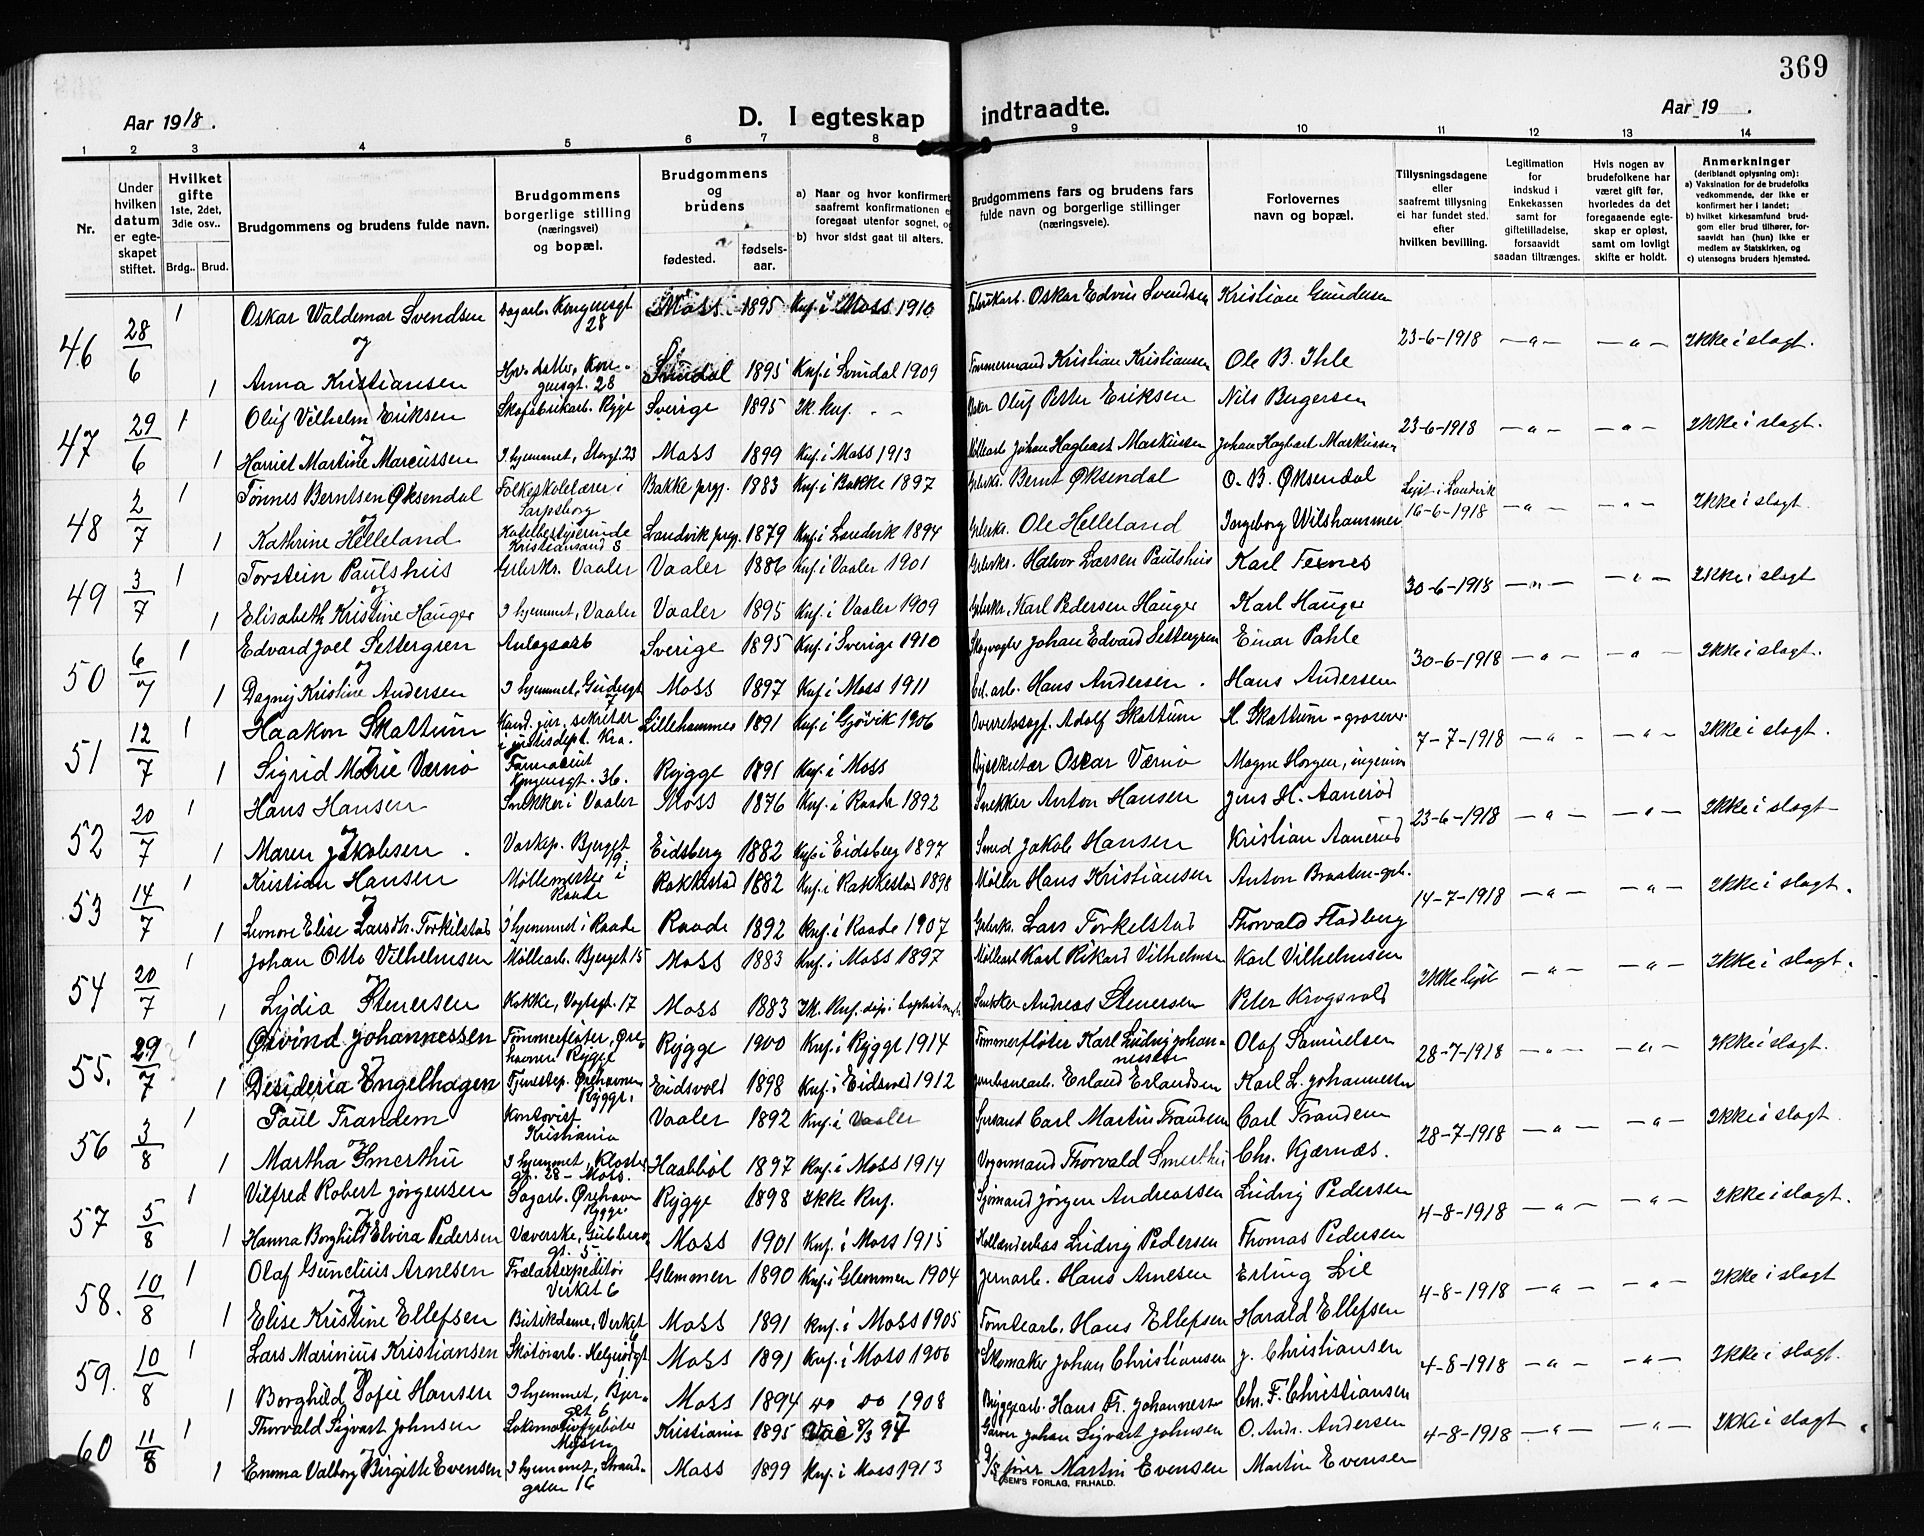 369
Aar 1918.
D. I egteskap indtraadte.
Aar 19 .
1 2 3 4 5 6 7 8 9 10 11 12 13 14
Nr.
Under hvilken datum er egteskapet stiftet.
Hvilket gifte 1ste, 2det, 3die osv..
Brdg.. Brud.
Brudgommens og brudens fulde navn.
Brudgommens borgerlige stilling (næringsvei) og bopæl.
Brudgommens og brudens
fødested. fødselsaar.
a) Naar og hvor konfirmert saafremt konfirmationen e foregaat utenfor sognet, og
b) hvor sidst gaat til alters.
Brudgommens fars og brudens fars fulde navn og borgerlige stillinger (næringsveie).
Forlovernes navn og bopæl.
Tillysningsdagene eller saafremt tillysning ei har fundet sted. efter hvilken bevilling.
Legitimation for indskud i Enkekassen samt for giftetilladelse, forsaavidt saadan tiltrænges.
Hvis nogen av brudefolkene har været gift før, hvorledes da det foregaaende egteskap er opløst, samt om lovligt skifte er holdt.
Anmerkninger (deriblandt oplysning om):
a) Vaksination for de brudefolks vedkommende, der ikke er konfirmert her i landet;
b) hvilket kirkesamfund brudgom eller brud tilhører, forsaavidt han (hun) ikke er medlem av Statskirken, og
c) utensogns bruders hjemsted.
46 28/6 1 Oskar Waldemar Svendsen Dagarb. Kongensgt 28 Moss 1895 Knf. i Moss 1910 Fabrikarb. Oskar Edvin Svendsen Kristian Gundersen 23-6-1918 — " — — " — Ikke i slagt.
og
1 Anna Kristiansen Kongensgt. 28 Svindal 1895 Knf. i Svindal 1909 Tømmermand Kristian Kristiansen Ole B. Ihle
47 29/6 1 Oluf Vilhelm Eriksen Skofabrikarb. Rygge Sverige 1895 Ik. knf. - - Oluf Petter Eriksen Nils Bergersen 23-6-1918 — " — — " — Ikke i slagt.
og
1 Harriet Martine Marcussen I hjemmet, Storgt. 23 Moss 1899 Knf. i Moss 1913 Møllearb. Johan Hagbart Markussen Johan Hagbart Markussen
48 2/7 1 Tønnes Berntsen Øksendal Folkeskolelærer i Sarpsborg Bakke prgj. 1883 Knf. i Bakke 1897 Grbrkr. Bernt Øksendal O. B. Øksendal Lyst i Landvik 16-6-1918 — " — — " — Ikke i slagt.
og
1 Kathrine Helleland Hotelbestyrerinde Kristiansand S Landvik prgj. 1879 Knf. i Landvik 1894 Grbrkr. Ole Helleland Ingeborg Wilshammer
49 3/7 1 Torstein Paulshus Grbrkr. Vaaler Vaaler 1886 Knf. i Vaaler 1901 Grbrkr. Halvor Larsen Paulshus Karl Texnes 30-6-1918 — " — — " — Ikke i slagt
og
1 Elisabeth Kristine Hauger I hjemmet, Vaaler Vaaler 1895 Knf. i Vaaler 1909 Grbrkr. Karl Pedersen Hauger Karl Hauger
50 6/7 1 Edvard Joel Settergren Anlægsarb Sverige 1895 Knf. i Sverige 1910 Skogvogter Johan Edvard Settergren Einar Pahle 30-6-1918 — " — — " — Ikke i slagt.
og
1 Dagny Kristine Andersen I hjemmet, Gudesgt 7 Moss 1897 Knf. i Moss 1911 Hans Andersen. Hans Andersen
51 12/7 1 Haakon Skattum Kand. jur., sekretær i justisdept. Kra. Lillehammer 1891 Knf. i Gjøvik 1906 Overretssagf. Adolf Skattum H. Skattum - groserer 7-7-1918 — " — — " — Ikke i slagt.
og
1 Sigrid Marie Værnø Farmaceut Kongensgt. 36. Rygge 1891 Knf. i Moss Oscar Værnø Magne Horgen, ingeniør
52 20/7 1 Hans Hansen Snekker i Vaaler Moss 1876 Knf. i Raade 1892 Snekker Anton Hansen Jens H. Aanerød 23-6-1918 — " — — " — Ikke i slagt
og
1 Maren Jakobsen. Vaskep. Bjerget 9. Eidsberg 1882 Knf. i Eidsberg 1897 Smed Jakob Hansen Kristian Aanerud
53 14/7 1 Kristian Hansen Møllemester i Raade Rakkestad 1882 Knf. i Rakkestad 1898 Møller Hans Kristiansen Anton Braaten - grb. 14-7-1918 — " — — " — Ikke i slagt.
og
1 Leonore Elise Larsdtr. Torkilstad I hjemmet i Raade Raade 1892 Knf. i Raade 1907 Grbrkr. Lars Torkelstad Thorvald Stadberg
54 20/7 1 Johan Otto Vilhelmsen Møllearb. Bjerget 15 Moss 1883 Knf. i Moss 1897 Møllearb Karl Rikard Vilhelmsen Karl Vilhelmsen Ikke lyst — " — — " — Ikke i slagt.
og
1 Lydia Stenersen Kokke, Vogtsgt. 17 Moss 1883 Ik. Knf. Snekker Andreas Stenersen Peter Krogsvold
55. 29/7 1 Øivind Johannessen Tømmerfløter, Ørehavnen Rygge Rygge 1900 Knf. i Rygge 1914 Tømmerfløter Karl Ludvig Johannessen Olaf Samuelsen 28-7-1918 — " — — " — Ikke i slagt.
og
1 Desideria Engelhagen Tjenestep. Ørehavnen Rygge. Eidsvold 1898 Knf. i Eidsvold 1912 Erland Erlandsen Karl L. Johannessen
56 3/8 1 Paul Trandem Kontorist Kristiania Vaaler 1892 Knf. i Vaaler Carl Martin Trandem Carl Trandem 28-7-1918 — " — — " — Ikke i slagt.
og
1 Martha Smerthu I hjemmet, Kloster gt. 28 - Moss. Haabbøl 1897 Knf. i Moss 1914 Vognmand Thorvald Smerthu Chr. Kjærnæs.
57 5/8 1 Vilfred Robert Jørgensen Sagarb. Ørehavn Rygge Rygge 1898 Ikke Knf. Sjømand Jørgen Andreassen Ludvig Pedersen 4-8-1918 — " — — " — Ikke i slagt.
og
1 Hanna Borghild Elvira Pedersen Væverske, gt. 5. Moss 1901 Knf. i Moss 1915 Ludvig Pedersen Thomas Pedersen
58. 10/8 1 Olaf Gunelius Arnesen Verket 6 Glemmen 1890 Knf. i Glemmen 1904 Jernarb. Hans Arnesen Erling Lie 4-8-1918 — " — — " — Ikke i slagt
og
1 Elise Kristine Ellefsen Butikdame, Verket 6 Moss 1891 Knf. i Moss 1905 Tomtearb. Hans Ellefsen Harald Ellefsen
59. 10/8 1 Lars Marinius Kristiansen Skotøiarb. Helgerødgt Moss 1891 Knf. i Moss 1906 Skomaker Johan Christiansen J. Christiansen 4-8-1918 — " — — " — Ikke i slagt.
og
1 Borghild Sofie Hansen I hjemmet, Bjerget 6 Moss 1894 do do 1908 Bryggearb. Hans Fr. Johannessen Chr. F. Christiansen
60 11/8 1 Thorvald Sigvart Johnsen Lokomotivfyrbøter Mysen Kristiania 1895 Vac 8/3 97 Garver Johan Sigvart Johnsen O. Andr. Andersen 4-8-1918 — " — — " — Ikke i slagt
og
1 Emma Valborg Birgitte Evensen I hjemmet, Strandgaten 16 Moss 1899 Knf. i Moss 1913 D/S fører Martin Evensen Martin Evensen
SEM'S FORLAG, FR.HALD.